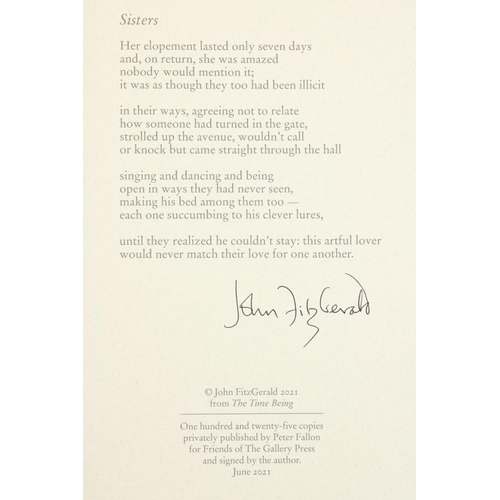 Sisters
Her elopement lasted only seven days
and, on return, she was amazed
nobody would mention it;
it was as though they too had been illicit
in their ways, agreeing not to relate
how someone had turned in the gate,
strolled up the avenue, wouldn't call
or knock but came straight through the hall
singing and dancing and being
open in ways they had never seen,
making his bed among them too —
each one succumbing to his clever lures,
until they realized he couldn't stay: this artful lover
would never match their love for one another.
John FitzGerald
© John FitzGerald 2021
from The Time Being
One hundred and twenty-five copies
privately published by Peter Fallon
for Friends of The Gallery Press
and signed by the author.
June 2021